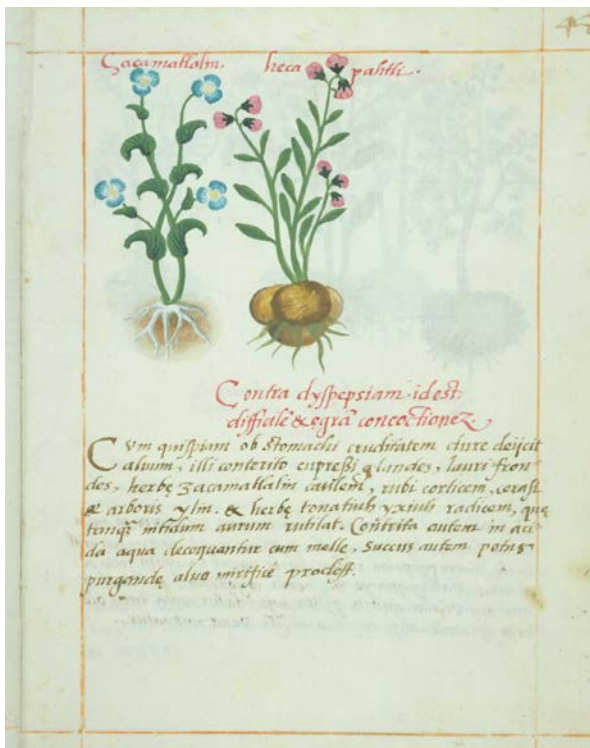 Çacamatlalin. heca pahtli.
Contra dyspepsiam .idest.
difficilē & ęgrā concoctionez.
Cvm quispiam ob stomachi cruditatem dure deijcit
aluum, illi conterito cupressi glandes, lauri fron-
des, herbę zacamatlalin caulem, rubi corticem, cerasi
& arboris ylin. & herbę tonatiuh yxiuh radicem, quę
tanq̃ nitidum aurum rutilat. Cõtrita autem in aci-
da aqua decoquantur cum melle, Succus autem potus
purgandę aluo mirifice prodest.